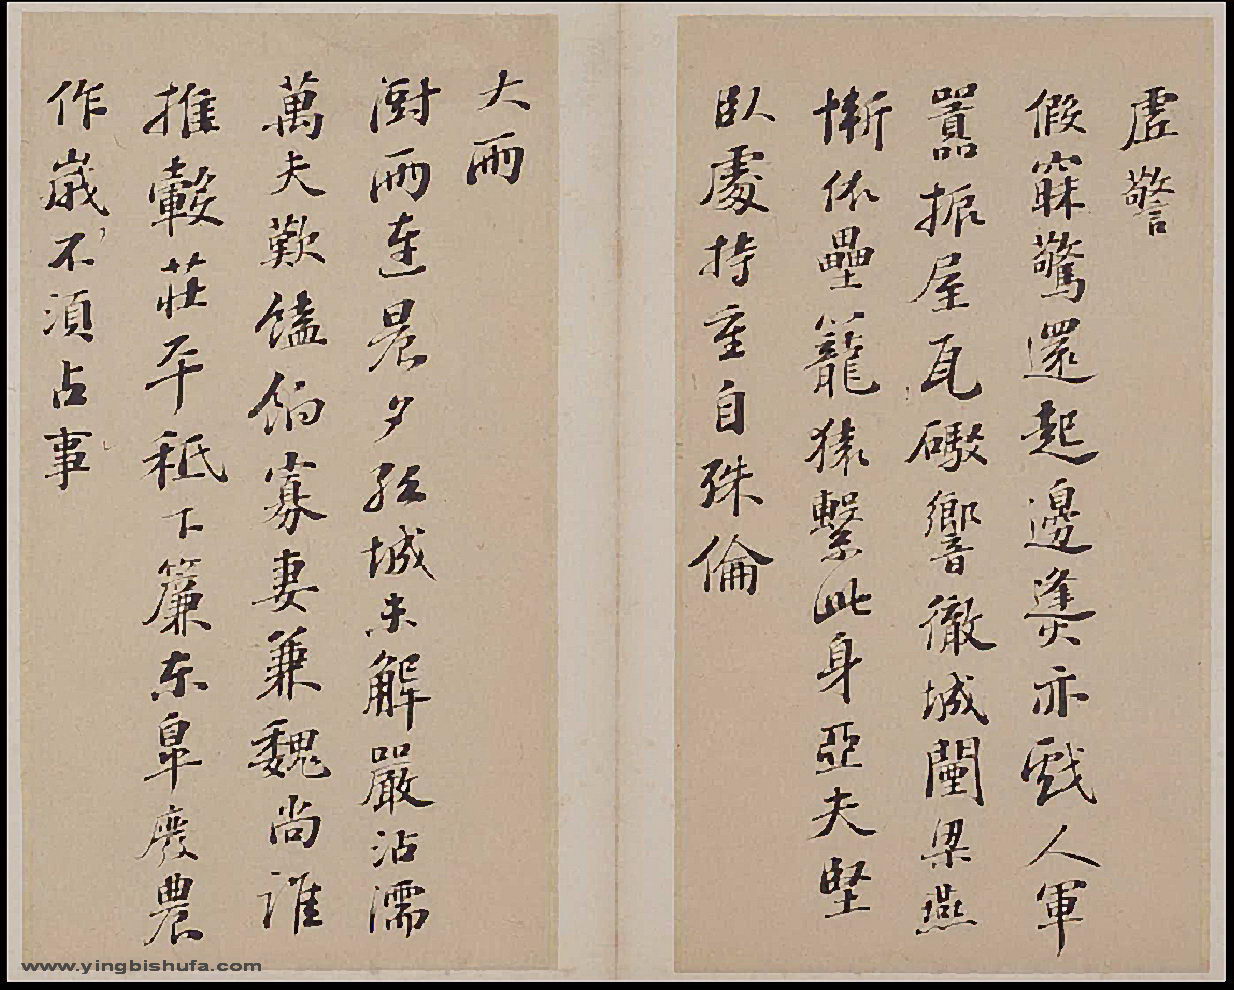 虛警
假寐驚還起邊烽亦戲人軍
囂振屋瓦礮響徹城闉梁燕
慚依壘籠猿繫此身亞夫堅
臥處持重自殊倫
大雨
廚雨連晨夕孤城未解嚴沾濡
萬夫歎饁餉寡妻兼魏尚誰
推轂莊平秪下簾東皋廢農
作歲不須占事
www.yingbishufa.com